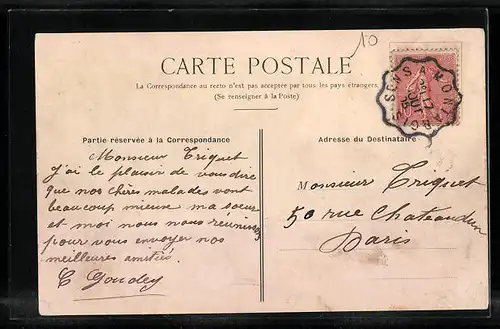 10
CARTE POSTALE
La Correspondance au recto n'est pas acceptée par tous les pays étrangers
(Se renseigner à la Poste)
SENS A MONTARGIS
17
Partie réservée à la Correspondance
Monsieur Triquet
j'ai le plaisir de vous dire
que nos chères malades vont
beaucoup mieux ma sœur
et moi nous nous réunissons
pour vous envoyer nos
meilleures amitiés
C Goudey
Adresse du Destinataire
Monsieur Triquet
50 rue Chateaudun
Paris